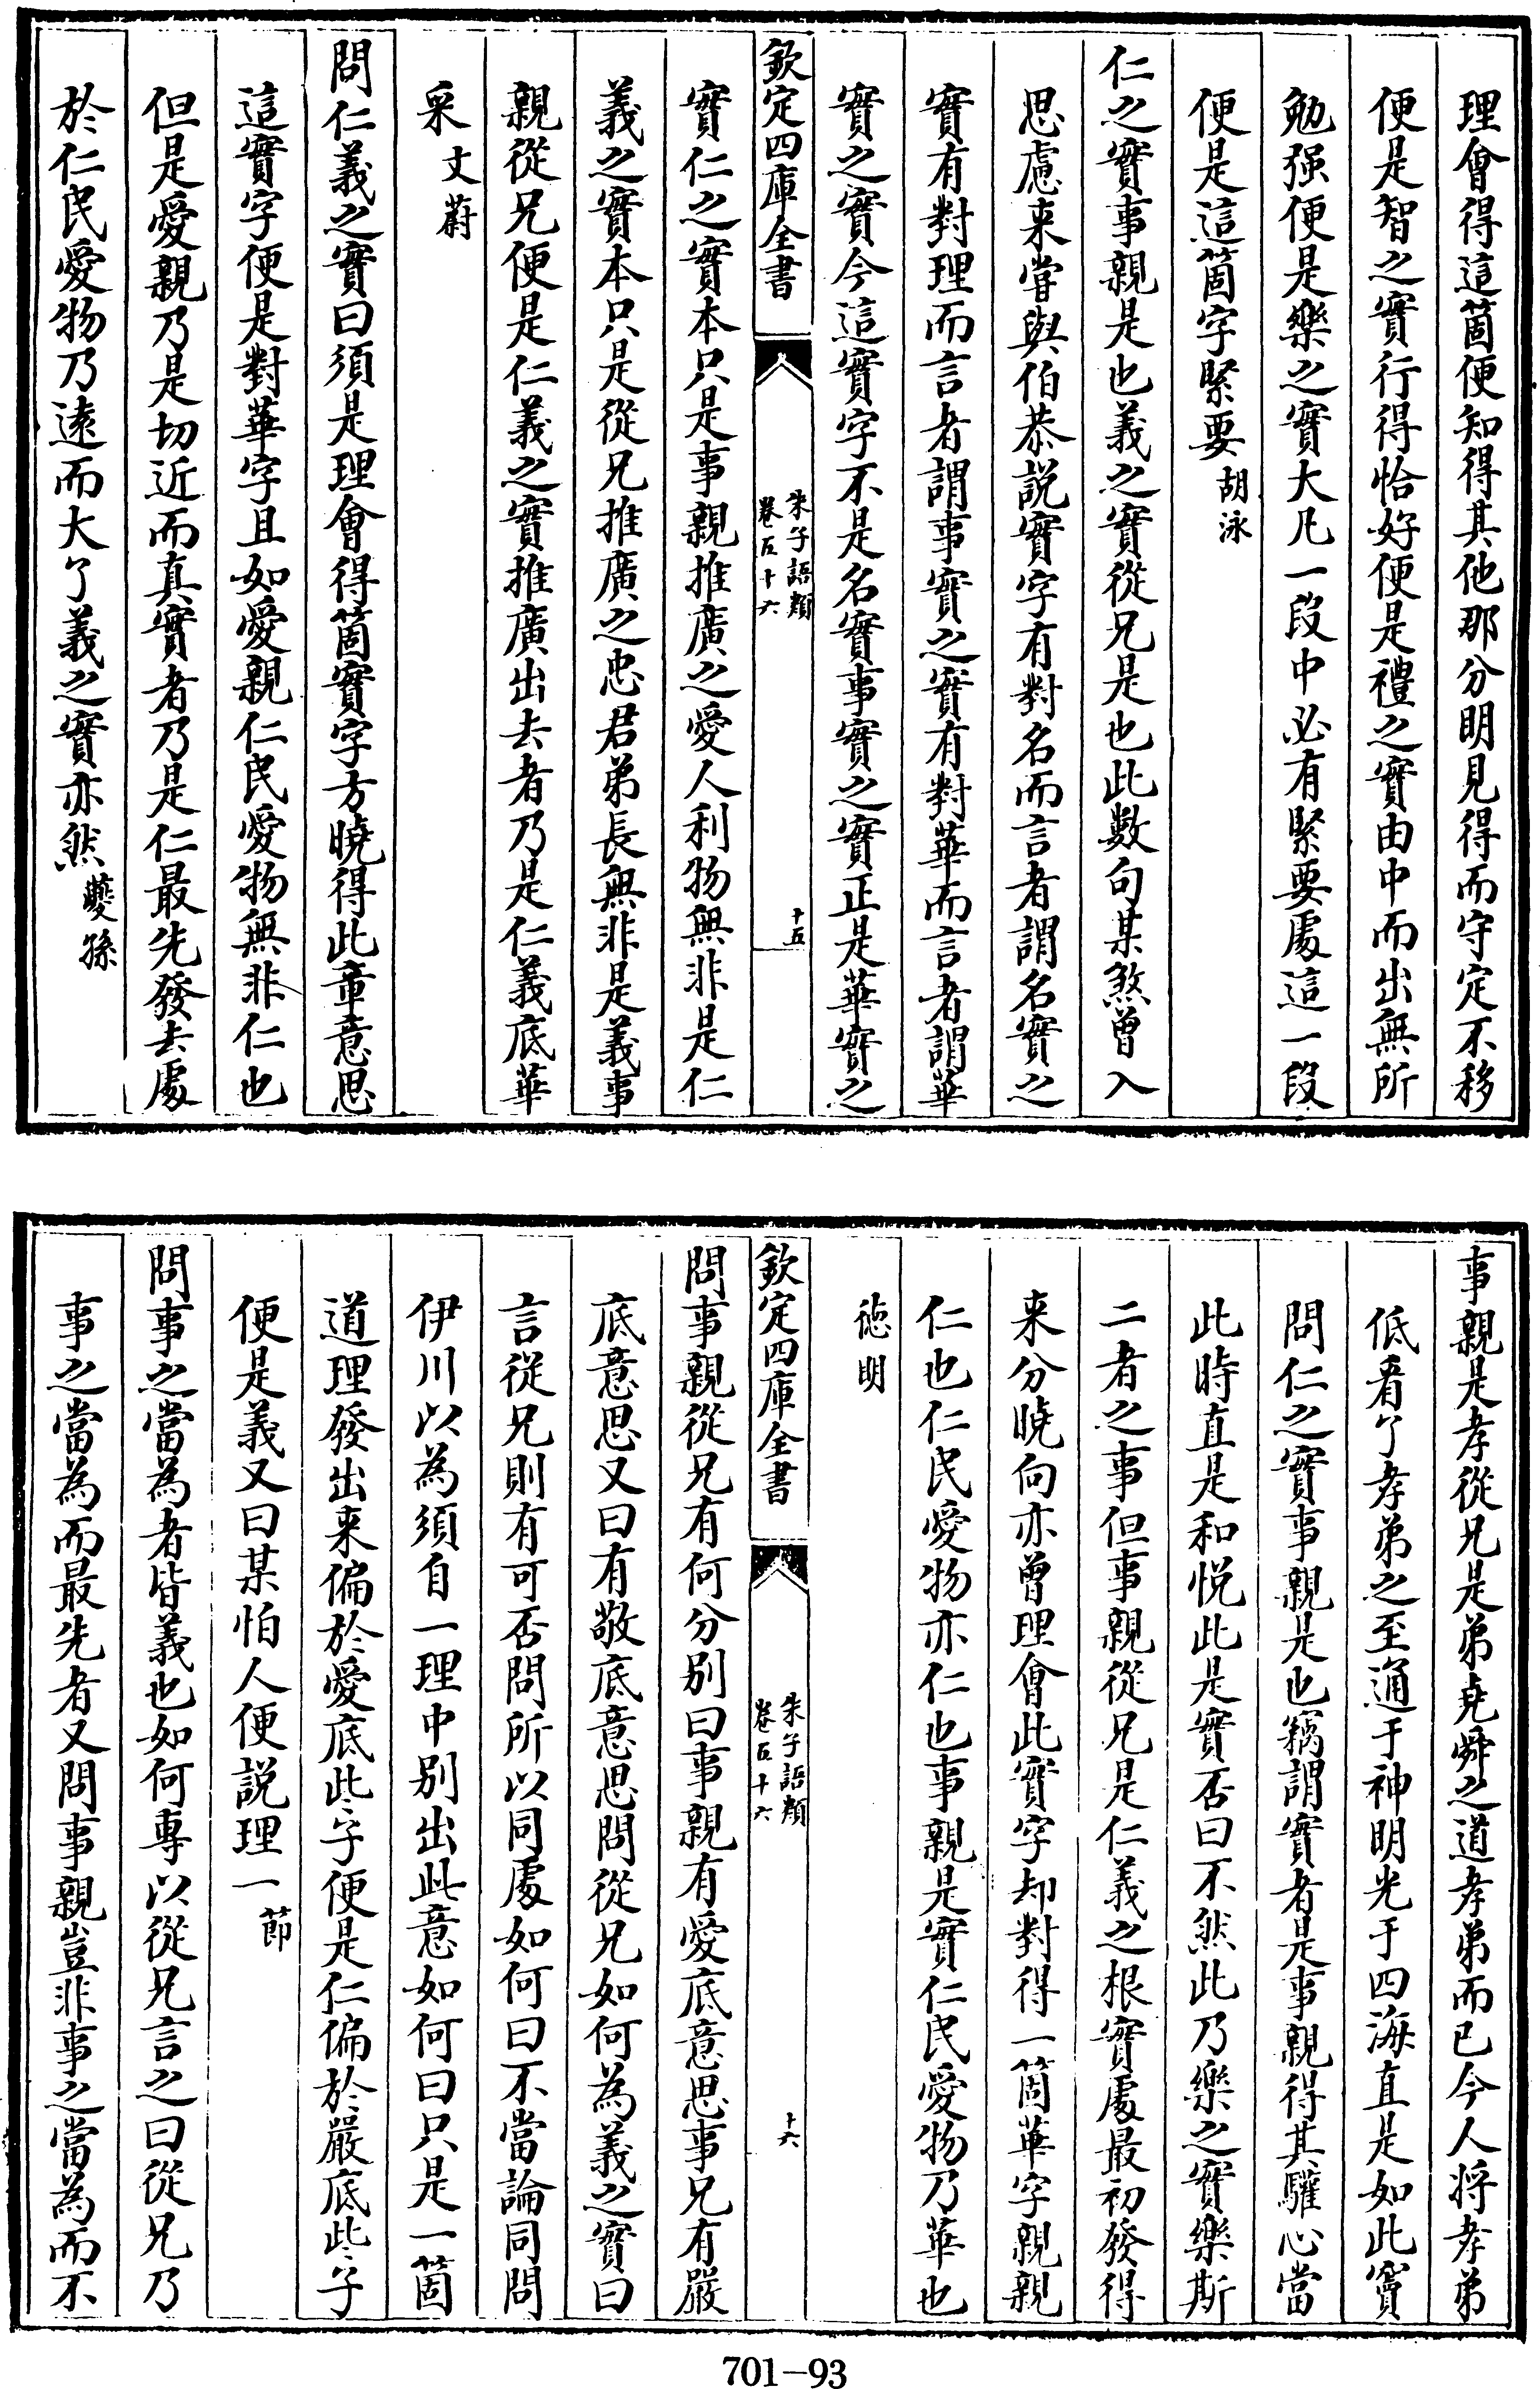 理㑹得這箇便知得其他那分明見得而守定不移
便是智之實行得恰好便是禮之實由中而出無所
勉强便是樂之實大凡一段中必有緊要處這一段
便是這箇字緊要胡泳
仁之實事親是也義之實從兄是也此數句某煞曾入
思慮来嘗與伯恭説實字有對名而言者謂名實之
實有對理而言者謂事實之實有對華而言者謂華
實之實今這實字不是名實事實之實正是華實之
欽定四庫全書
朱子語類
卷五十六
十五
實仁之實本只是事親推廣之愛人利物無非是仁
義之實本只是從兄推廣之忠君弟長無非是義事
親從兄便是仁義之實推廣出去者乃是仁義底華
采文蔚
問仁義之實曰須是理會得箇實字方曉得此章意思
這實字便是對華字且如愛親仁民愛物無非仁也
但是愛親乃是切近而真實者乃是仁最先發去處
於仁民愛物乃遠而大了義之實亦然夔孫
事親是孝從兄是弟堯舜之道孝弟而已今人將孝弟
低看了孝弟之至通于神明光于四海直是如此竇
問仁之實事親是也竊謂實者是事親得其驩心當
此時直是和悦此是實否曰不然此乃樂之實樂斯
二者之事但事親從兄是仁義之根實處最初發得
来分曉向亦曾理會此實字却對得一箇華字親親
仁也仁民愛物亦仁也事親是實仁民愛物乃華也
徳明
欽定四庫全書
朱子語類
卷五十六
十六
問事親從兄有何分别曰事親有愛底意思事兄有嚴
底意思又曰有敬底意思問從兄如何為義之實曰
言從兄則有可否問所以同處如何曰不當論同問
伊川以為須自一理中别出此意如何曰只是一箇
道理發出来偏於愛底些子便是仁偏於嚴底些子
便是義又曰某怕人便説理一節
問事之當為者皆義也如何專以從兄言之曰從兄乃
事之當為而最先者又問事親豈非事之當為而不
701-93